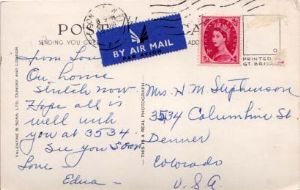 POST CA
SENDING YOU GREE
BY AIR MAIL
PAR AVION
PRINTED
GT. BRITAIN
From London
On home
stretch now
Hope all is
well with
you at 3534.
See you soon
Love
Edna -
VALENTINE & SONS, LTD. DUNDEE AND LONDON
THIS IS A REAL PHOTOGRAPH
Mrs H M Stephenson
3534 Columbine St
Denver
Colorado
U.S.A